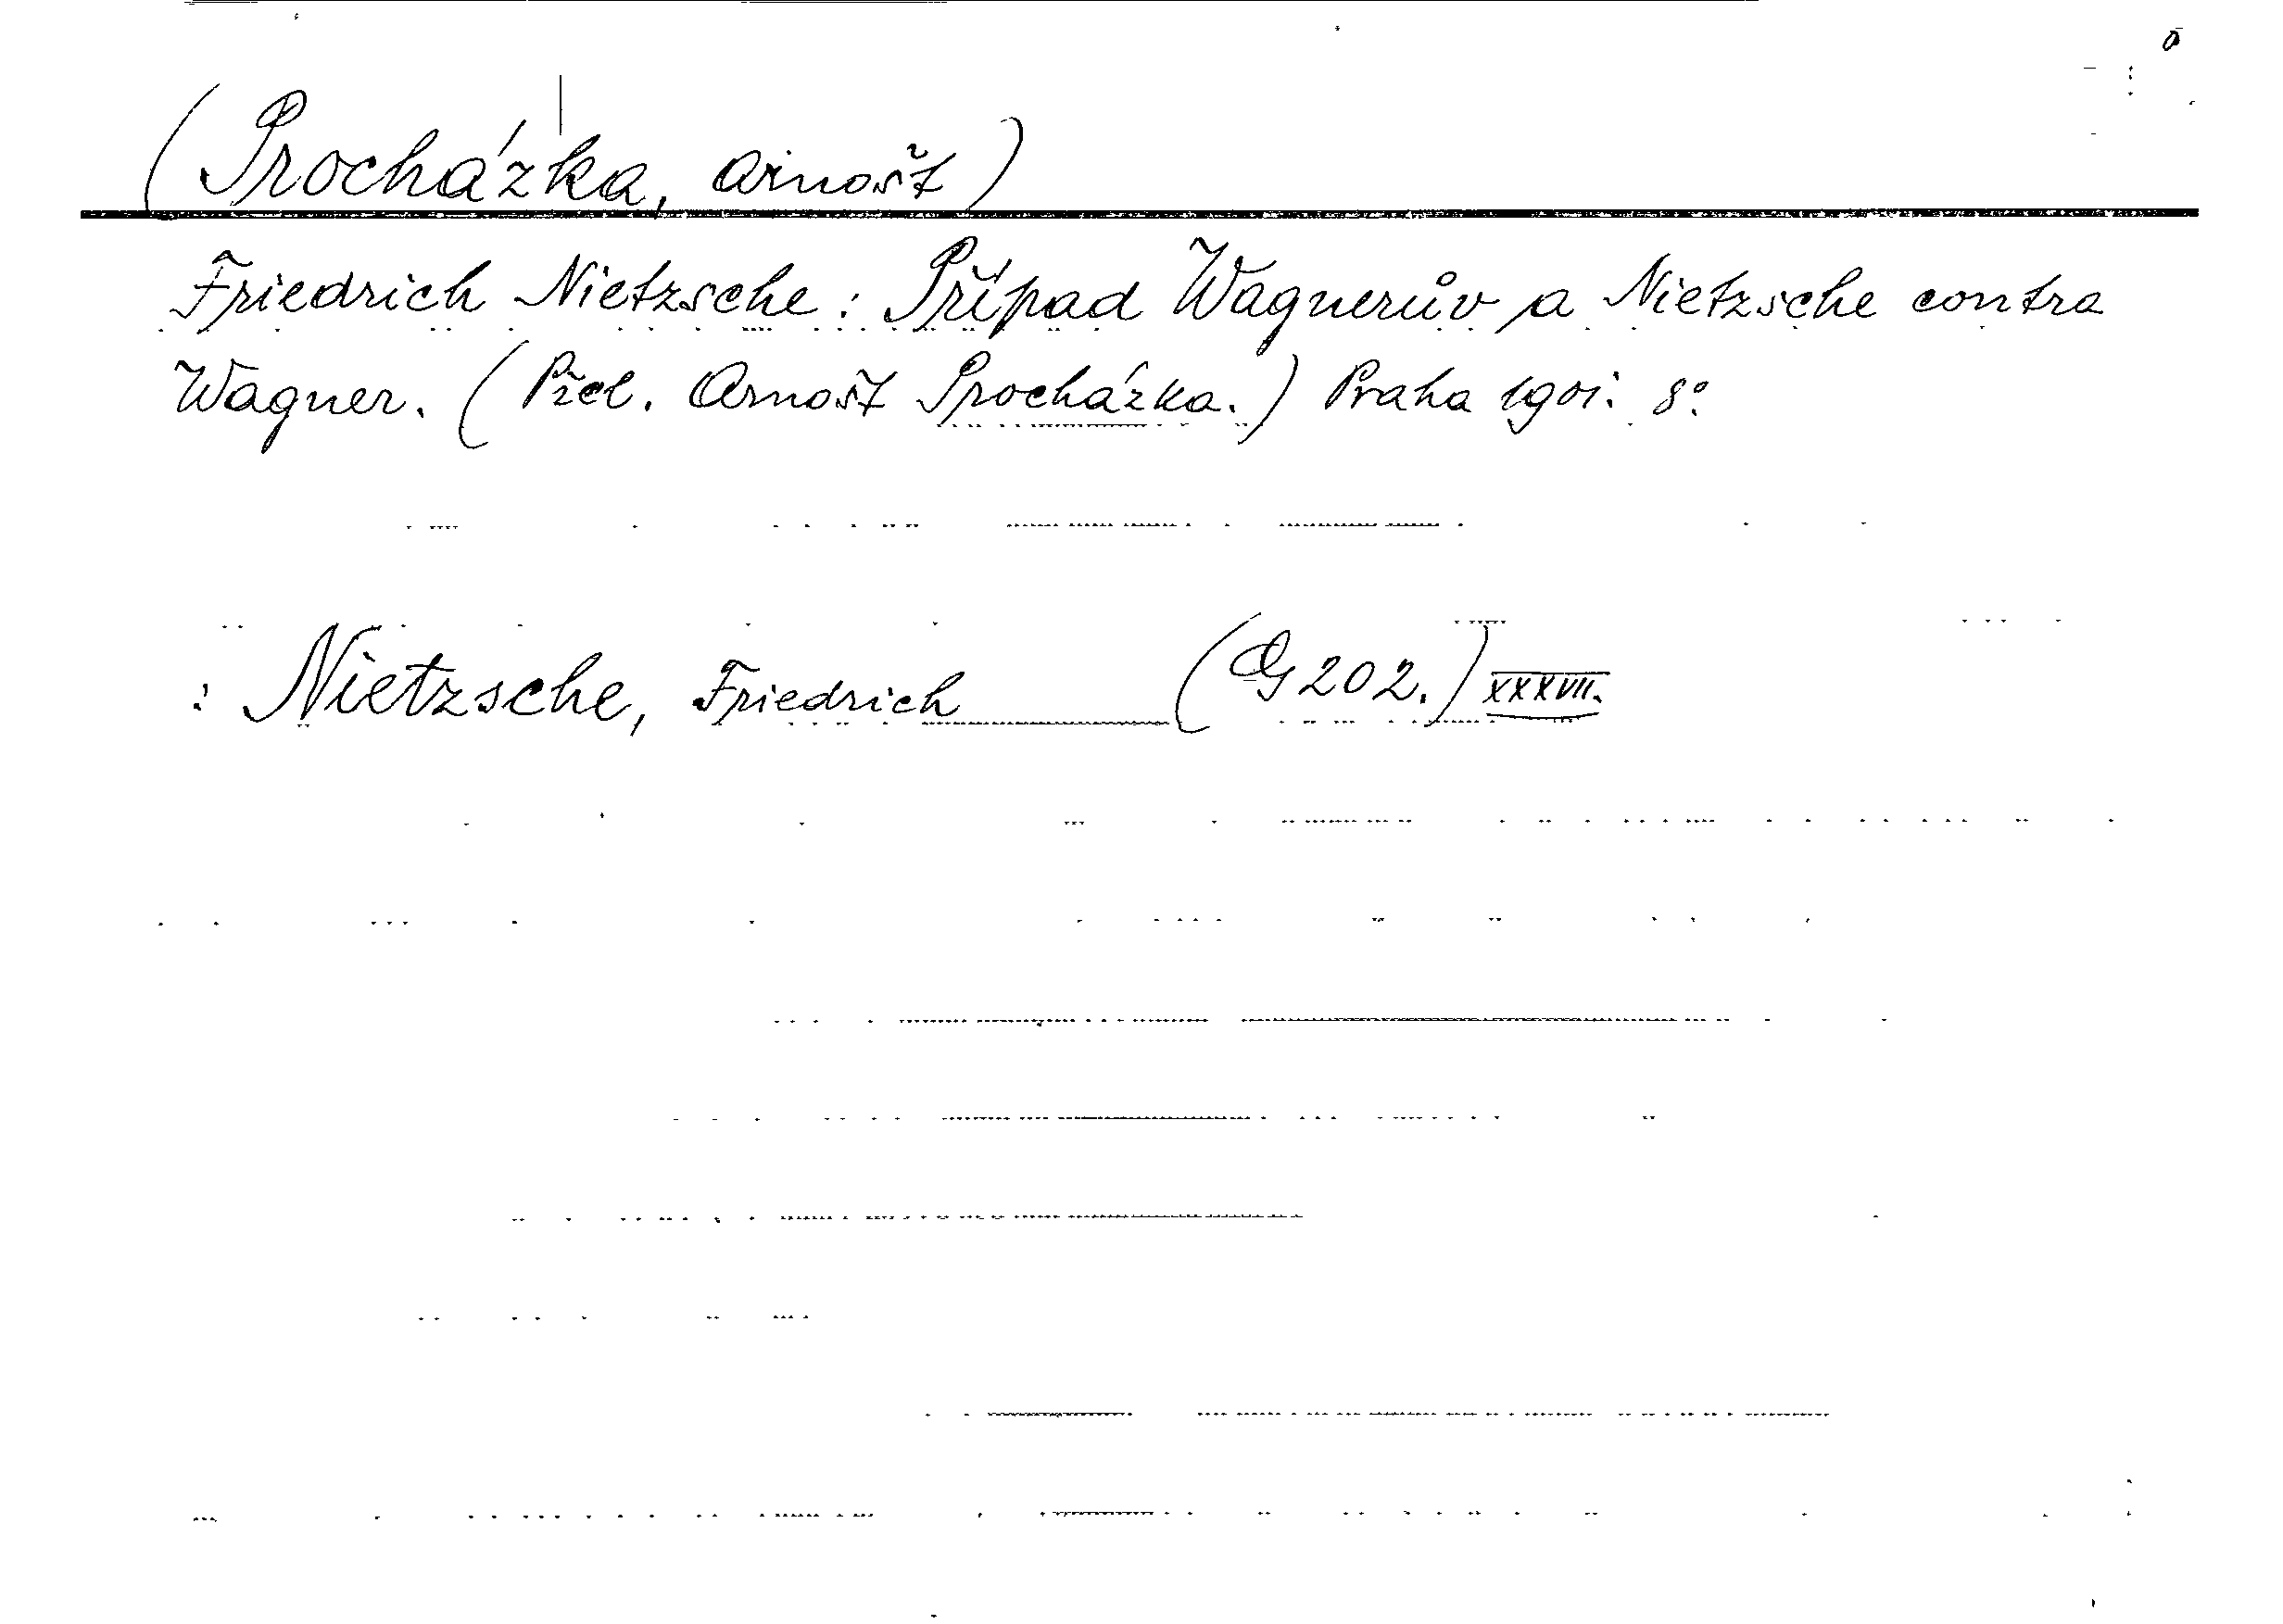 (Procházka, Arnošt)
Friedrich Nietzsche: Případ Wagnerův a Nietzsche contra
Wagner. (Přel. Arnošt Procházka.) Praha 1901. 8°.
: Nietzsche, Friedrich (G 202.) XXXVII.